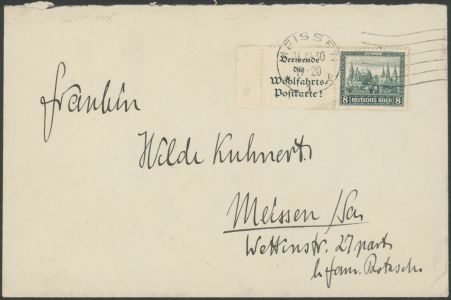 MEISSE
30
-20
Verwende
die
Wohlfahrts-
Postkarte!
8 DEUTSCHES REICH 8
Fräulein
Hilde Kuhnert
Meissen/Sa
Wettinstr. 27 part
b/fam.